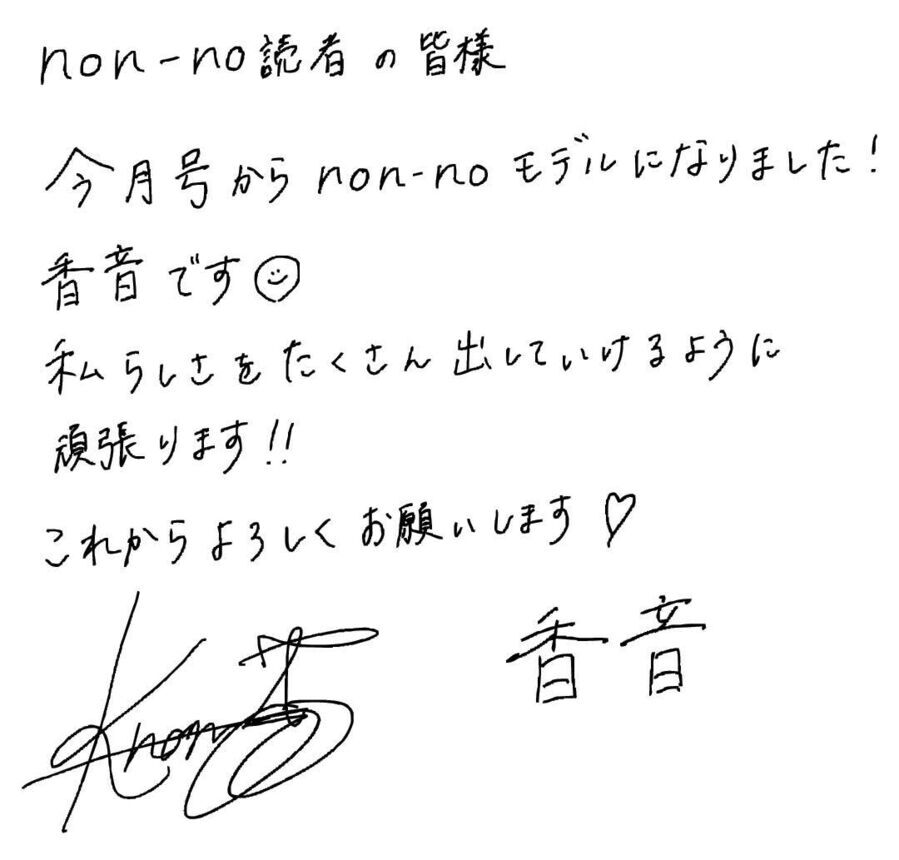 non-no読者の皆様
今月号からnon-noモデルになりました!
香音です☺
私らしさをたくさん出していけるように
頑張ります!!
これからよろしくお願いします♡
香音